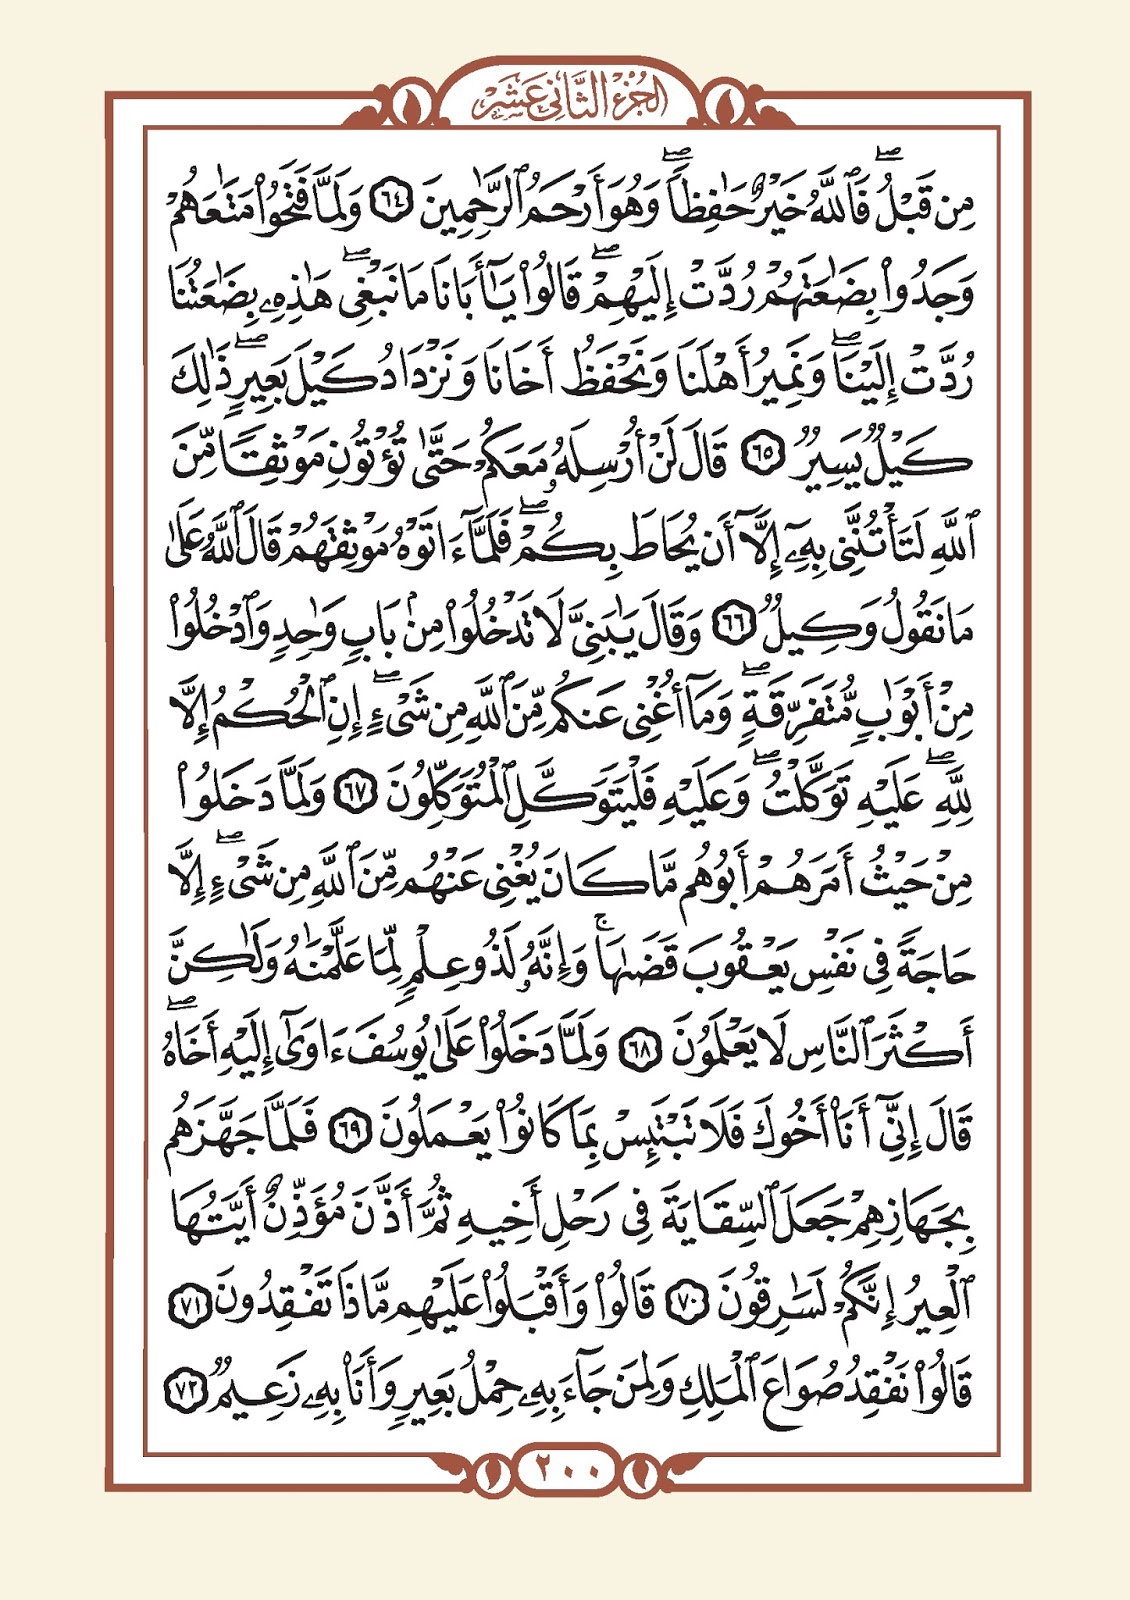 الجُزْءُ الثَّانِي عَشَر
مِن قَبْلُ ۖ فَٱللَّهُ خَيْرٌ حَٰفِظًا ۖ وَهُوَ أَرْحَمُ ٱلرَّٰحِمِينَ ٦٤ وَلَمَّا فَتَحُوا۟ مَتَٰعَهُمْ
وَجَدُوا۟ بِضَٰعَتَهُمْ رُدَّتْ إِلَيْهِمْ ۖ قَالُوا۟ يَٰٓأَبَانَا مَا نَبْغِى ۖ هَٰذِهِۦ بِضَٰعَتُنَا
رُدَّتْ إِلَيْنَا ۖ وَنَمِيرُ أَهْلَنَا وَنَحْفَظُ أَخَانَا وَنَزْدَادُ كَيْلَ بَعِيرٍ ۖ ذَٰلِكَ
كَيْلٌ يَسِيرٌ ٦٥ قَالَ لَنْ أُرْسِلَهُۥ مَعَكُمْ حَتَّىٰ تُؤْتُونِ مَوْثِقًا مِّنَ
ٱللَّهِ لَتَأْتُنَّنِى بِهِۦٓ إِلَّآ أَن يُحَاطَ بِكُمْ ۖ فَلَمَّآ ءَاتَوْهُ مَوْثِقَهُمْ قَالَ ٱللَّهُ عَلَىٰ
مَا نَقُولُ وَكِيلٌ ٦٦ وَقَالَ يَٰبَنِىَّ لَا تَدْخُلُوا۟ مِنۢ بَابٍ وَٰحِدٍ وَٱدْخُلُوا۟
مِنْ أَبْوَٰبٍ مُّتَفَرِّقَةٍ ۖ وَمَآ أُغْنِى عَنكُم مِّنَ ٱللَّهِ مِن شَىْءٍ ۖ إِنِ ٱلْحُكْمُ إِلَّا
لِلَّهِ ۖ عَلَيْهِ تَوَكَّلْتُ ۖ وَعَلَيْهِ فَلْيَتَوَكَّلِ ٱلْمُتَوَكِّلُونَ ٦٧ وَلَمَّا دَخَلُوا۟
مِنْ حَيْثُ أَمَرَهُمْ أَبُوهُم مَّا كَانَ يُغْنِى عَنْهُم مِّنَ ٱللَّهِ مِن شَىْءٍ ۖ إِلَّا
حَاجَةً فِى نَفْسِ يَعْقُوبَ قَضَىٰهَا ۚ وَإِنَّهُۥ لَذُو عِلْمٍ لِّمَا عَلَّمْنَٰهُ وَلَٰكِنَّ
أَكْثَرَ ٱلنَّاسِ لَا يَعْلَمُونَ ٦٨ وَلَمَّا دَخَلُوا۟ عَلَىٰ يُوسُفَ ءَاوَىٰٓ إِلَيْهِ أَخَاهُ ۖ
قَالَ إِنِّىٓ أَنَا۠ أَخُوكَ فَلَا تَبْتَئِسْ بِمَا كَانُوا۟ يَعْمَلُونَ ٦٩ فَلَمَّا جَهَّزَهُم
بِجَهَازِهِمْ جَعَلَ ٱلسِّقَايَةَ فِى رَحْلِ أَخِيهِ ثُمَّ أَذَّنَ مُؤَذِّنٌ أَيَّتُهَا
ٱلْعِيرُ إِنَّكُمْ لَسَٰرِقُونَ ٧٠ قَالُوا۟ وَأَقْبَلُوا۟ عَلَيْهِم مَّاذَا تَفْقِدُونَ ٧١
قَالُوا۟ نَفْقِدُ صُوَاعَ ٱلْمَلِكِ وَلِمَن جَآءَ بِهِۦ حِمْلُ بَعِيرٍ وَأَنَا۠ بِهِۦ زَعِيمٌ ٧٢
٢٠٠